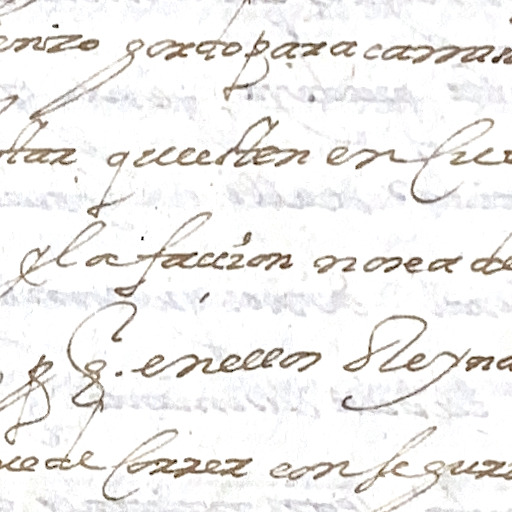 enzo gordo para carran
star que esten en Cur
q la faccion no sea de
p q. en ellos Reyna
uede Correr con segura